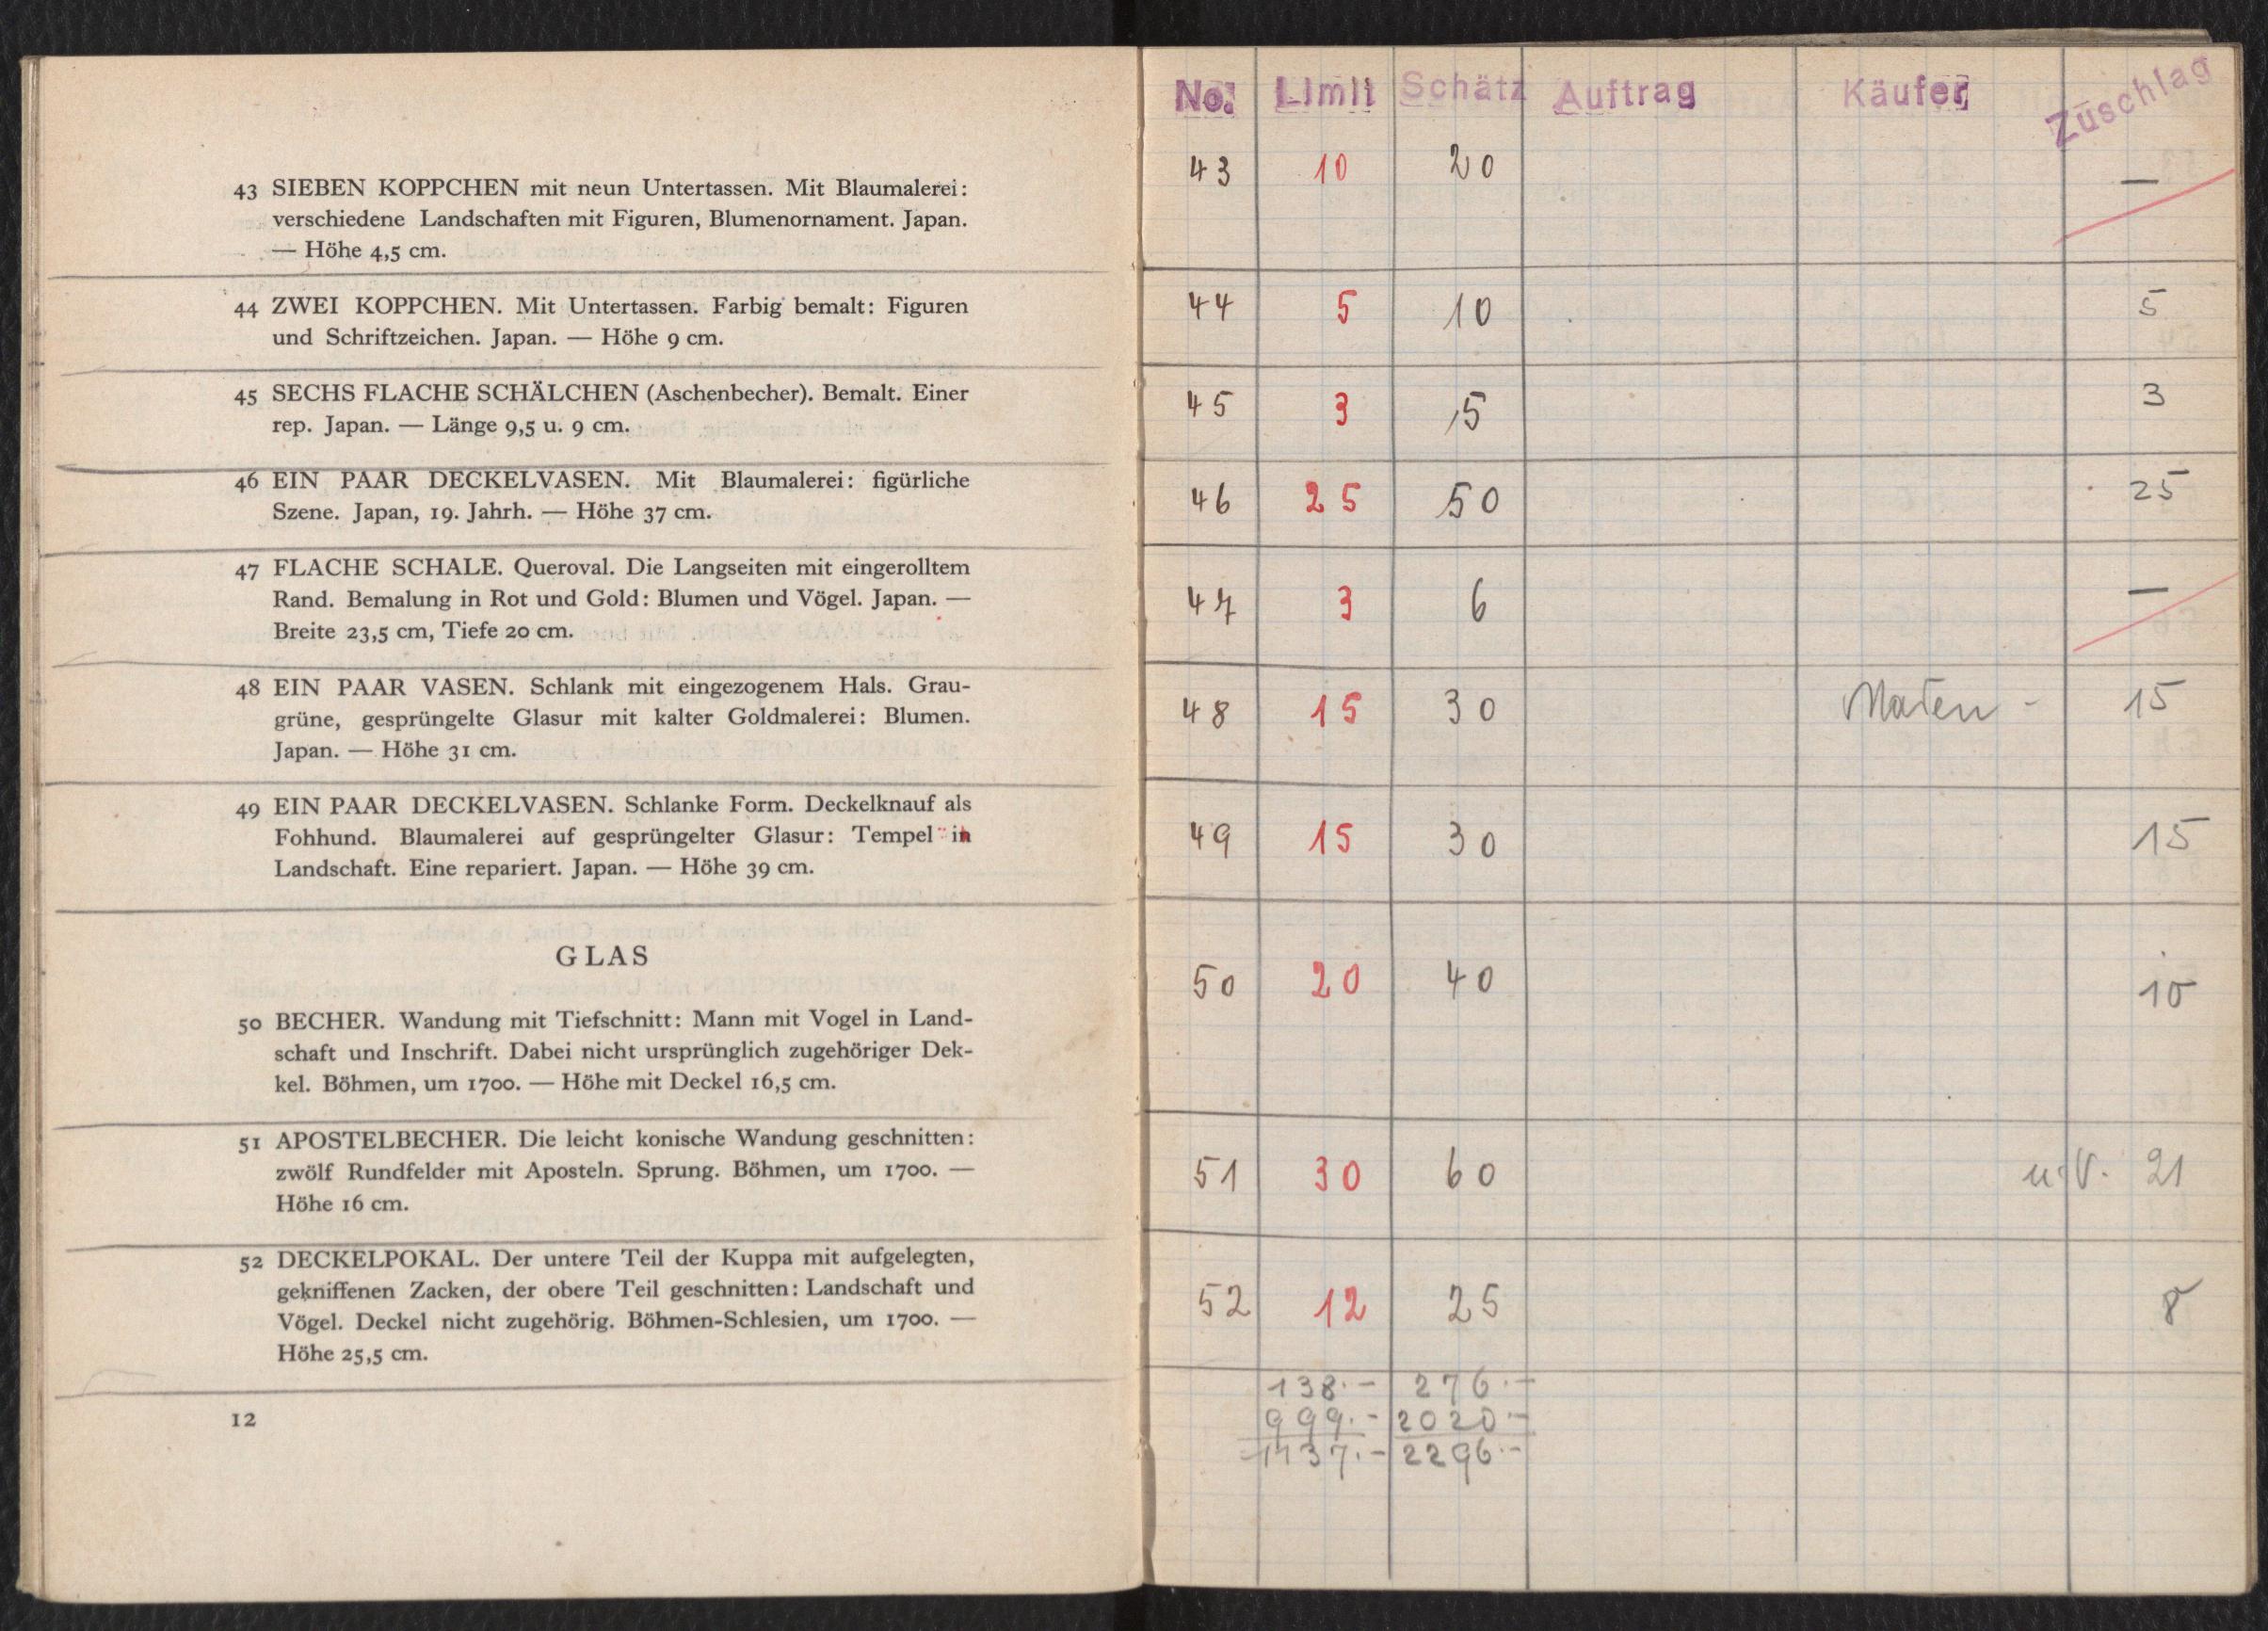 43 SIEBEN KOPPCHEN mit neun Untertassen. Mit Blaumalerei:
verschiedene Landschaften mit Figuren, Blumenornament. Japan.
— Höhe 4,5 cm.
44 ZWEI KOPPCHEN. Mit Untertassen. Farbig bemalt: Figuren
und Schriftzeichen. Japan. — Höhe 9 cm.
45 SECHS FLACHE SCHÄLCHEN (Aschenbecher). Bemalt. Einer
rep. Japan. — Länge 9,5 u. 9 cm.
46 EIN PAAR DECKELVASEN. Mit Blaumalerei: figürliche
Szene. Japan, 19. Jahrh. — Höhe 37 cm.
47 FLACHE SCHALE. Queroval. Die Langseiten mit eingerolltem
Rand. Bemalung in Rot und Gold: Blumen und Vögel. Japan. —
Breite 23,5 cm, Tiefe 20 cm.
48 EIN PAAR VASEN. Schlank mit eingezogenem Hals. Grau-
grüne, gesprüngelte Glasur mit kalter Goldmalerei: Blumen.
Japan. — Höhe 31 cm.
49 EIN PAAR DECKELVASEN. Schlanke Form. Deckelknauf als
Fohhund. Blaumalerei auf gesprüngelter Glasur: Tempel in
Landschaft. Eine repariert. Japan. — Höhe 39 cm.
GLAS
50 BECHER. Wandung mit Tiefschnitt: Mann mit Vogel in Land-
schaft und Inschrift. Dabei nicht ursprünglich zugehöriger Dek-
kel. Böhmen, um 1700. — Höhe mit Deckel 16,5 cm.
51 APOSTELBECHER. Die leicht konische Wandung geschnitten:
zwölf Rundfelder mit Aposteln. Sprung. Böhmen, um 1700. —
Höhe 16 cm.
52 DECKELPOKAL. Der untere Teil der Kuppa mit aufgelegten,
gekniffenen Zacken, der obere Teil geschnitten: Landschaft und
Vögel. Deckel nicht zugehörig. Böhmen-Schlesien, um 1700. —
Höhe 25,5 cm.
12
No. Limit Schätz Auftrag Käufer Zuschlag
43 10 20 —
44 5 10 5
45 3 5 3
46 25 50 25
47 3 6 —
48 15 30 15
49 15 30 15
50 20 40 10
51 30 60 u. V. 21
52 12 25 8
138.- 276.-
999.- 2020.-
1137.- 2296.-